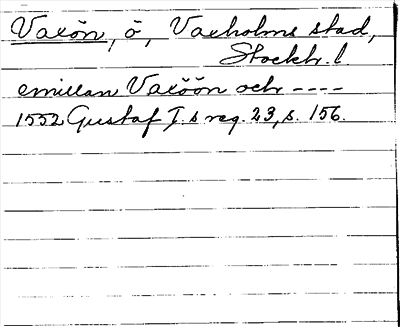 Vaxön, ö, Vaxholms stad,
Stockh. l
emillan Vaxöön och ----
1552 Gustaf I.s reg. 23, s. 156.